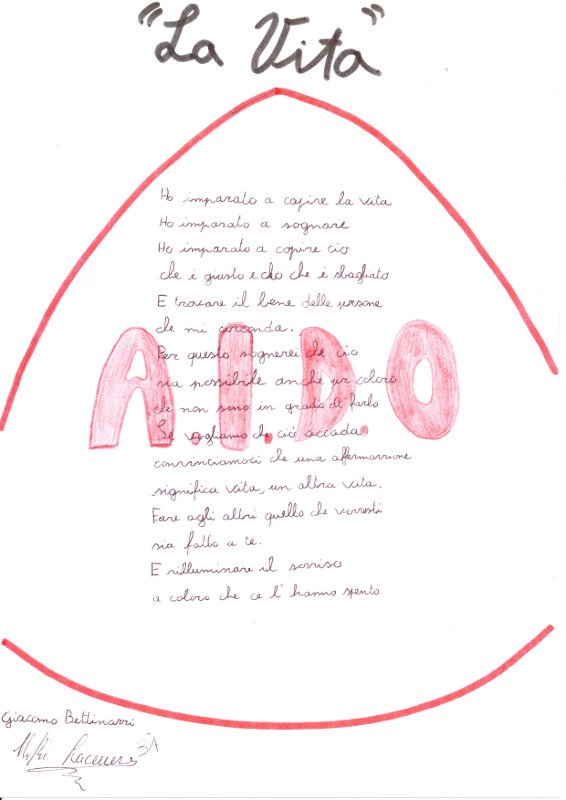 "La Vita"
Ho imparato a capire la vita
Ho imparato a sognare
Ho imparato a capire ciò
che è giusto e ciò che è sbagliato
E trovare il bene delle persone
che mi circonda.
A.I.D.O
Per questo sognerei che ciò
sia possibile anche per coloro
che non sono in grado di farlo
Se vogliamo che ciò accada
convinciamoci che una affermazione
significa vita, un altra vita.
Fare agli altri quello che vorresti
sia fatto a te.
E rilluminare il sorriso
a coloro che ce l'hanno spento
Giacomo Bettinarri
3A